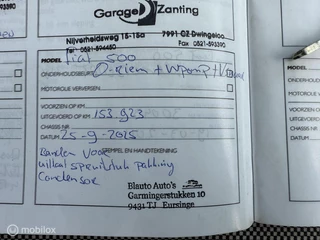 Garage Zanting
Nijverheidsweg 15-15a 7991 CZ Dwingeloo
Tel 0521-594480 Fax 0521-593390
MODEL Fiat 500
ONDERHOUDSBEURT D-riem + Wpomp + V
MOTOROLIE VERVERSEN
VOORZIEN OP KM
UITGEVOERD OP KM 153.923
CHASSIS NR
DATUM 25-9-2025
STEMPEL EN HANDTEKENING
Banden voor
uitlaat spruitstuk pakking
Condensor
Blauto Auto's
Garmingerstukken 10
9431 TJ Eursinge
593390
MODEL
ONDERHOUDS
MOTOROLIE
VOORZIEN OP
UITGEVOERD
CHASSIS NR
DATUM
mobilox